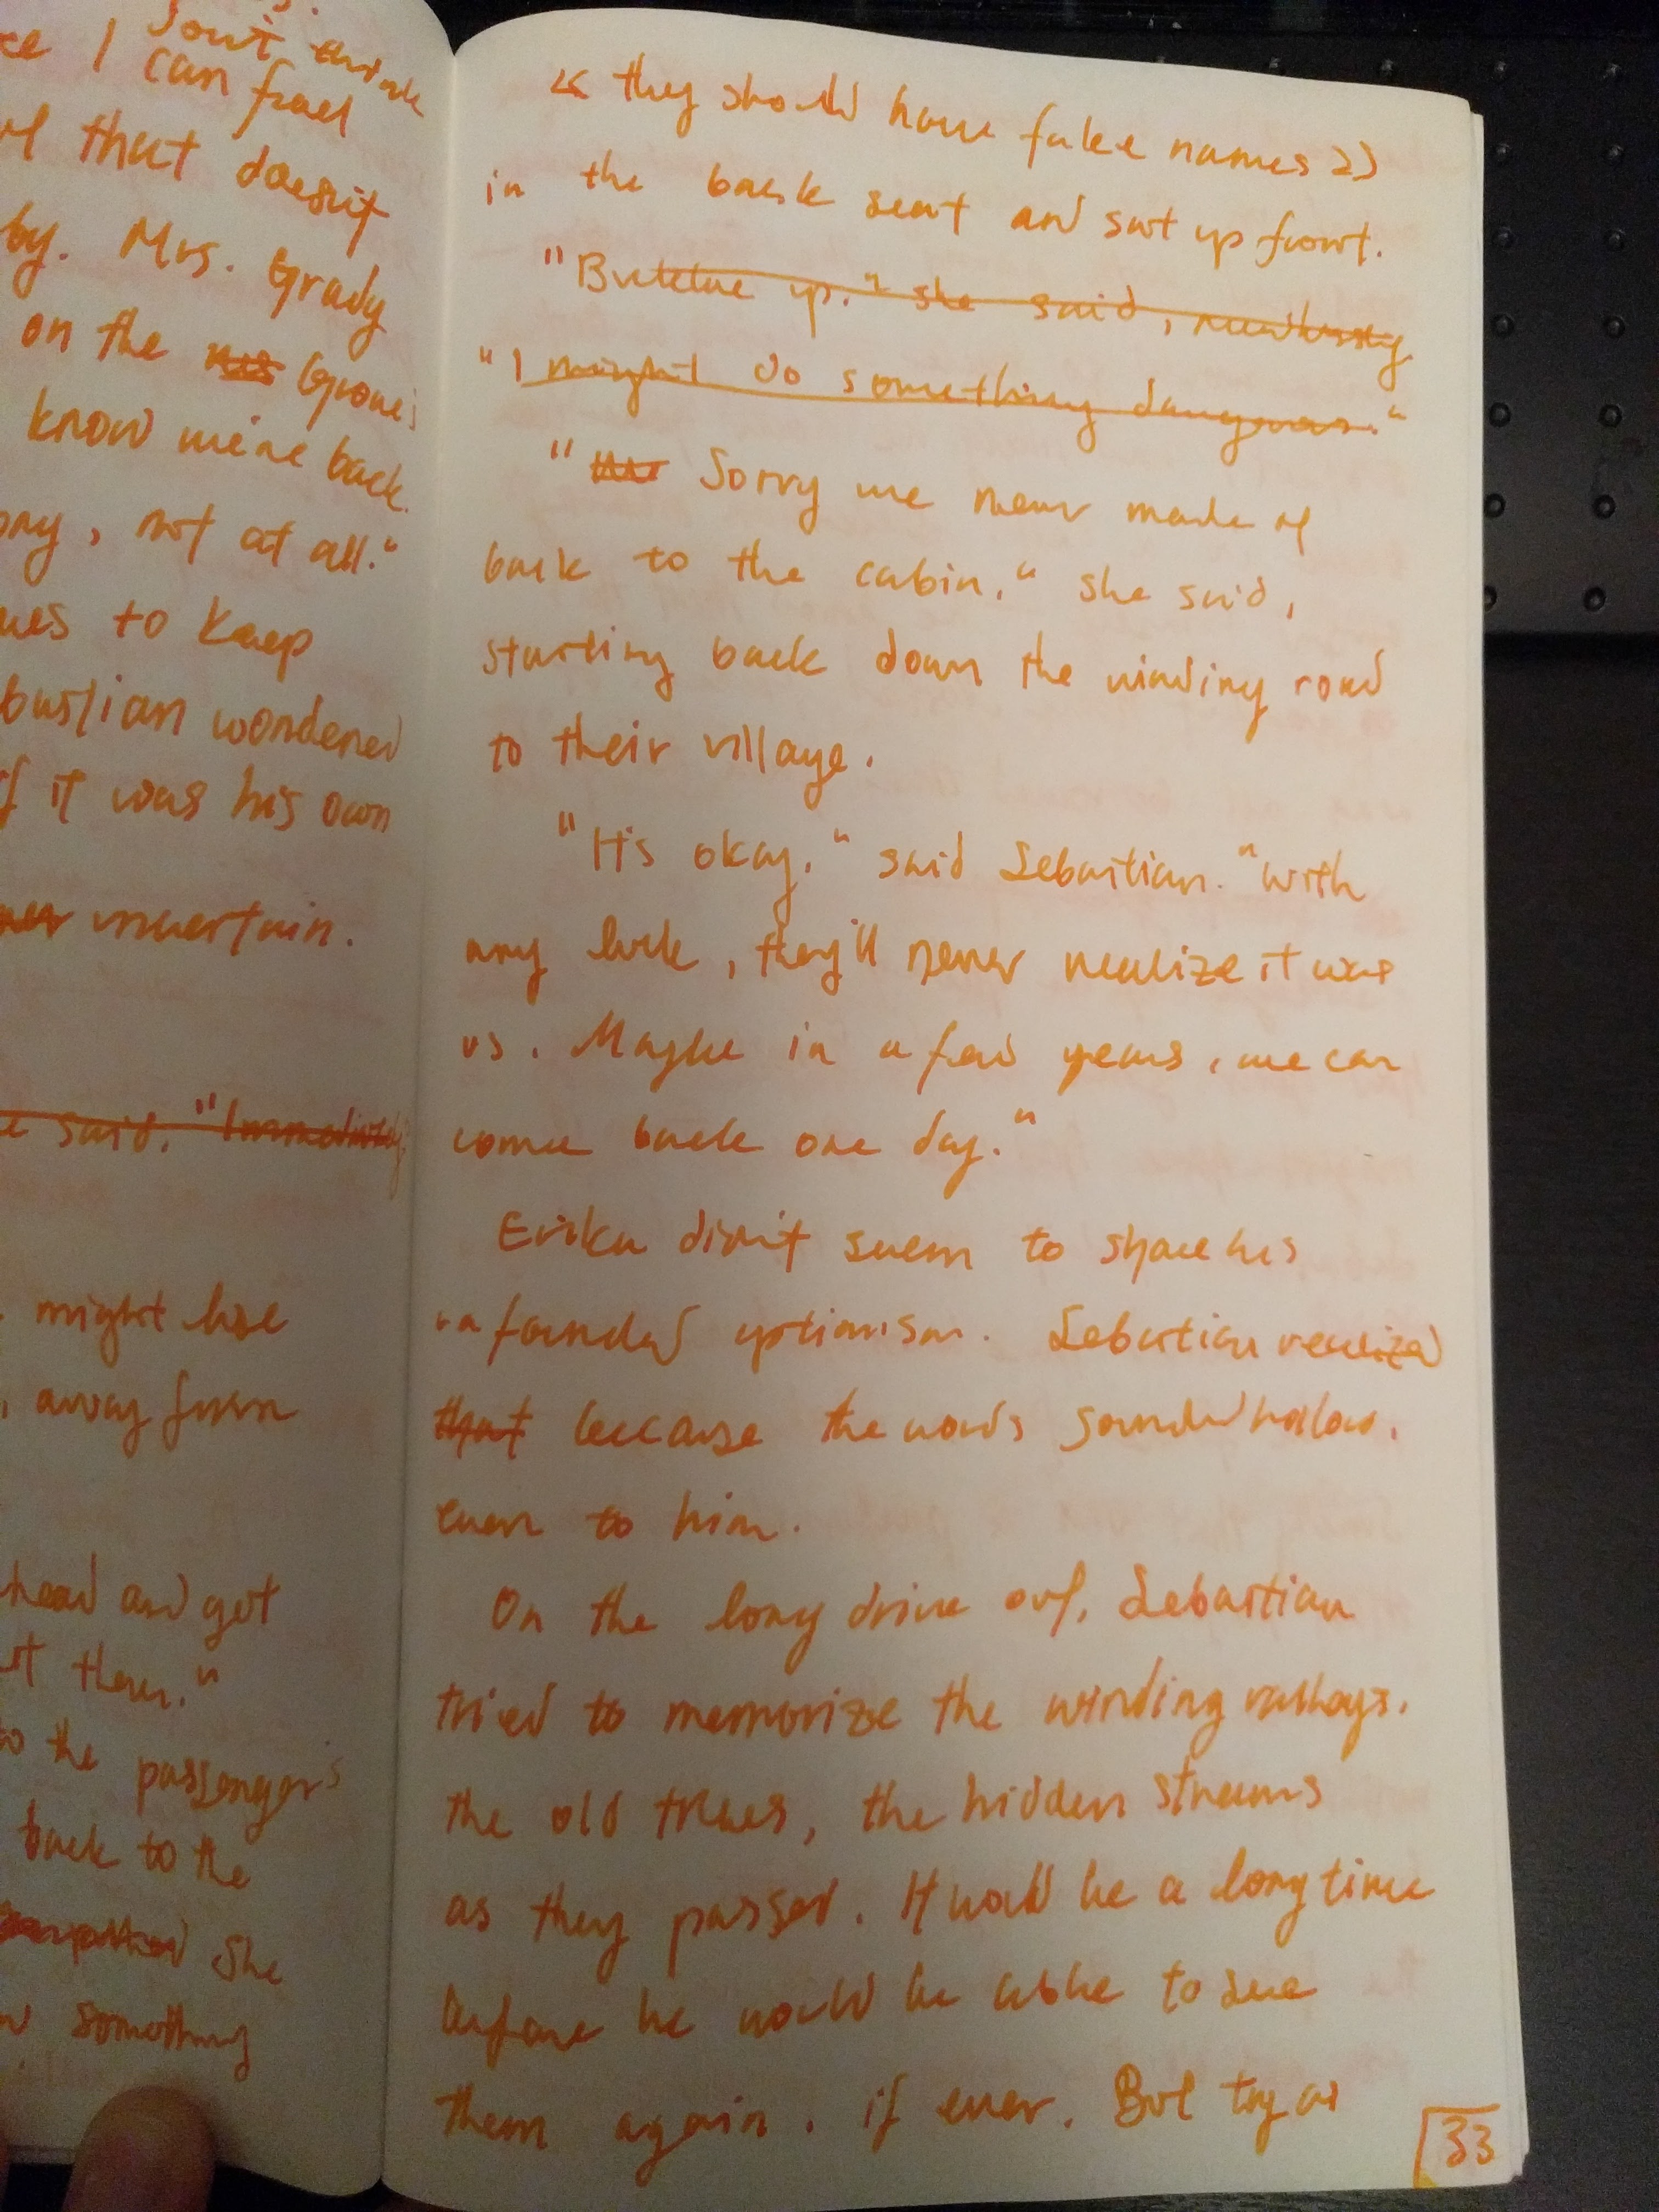 don't think
ce I can fuel
of that doesn't
by. Mrs. Grady
on the
know we're back.
ony, not at all."
ues to keep
bastian wondered
f it was his own
uncertain.
e said. "Immediately
might lose
, away from
head and get
st there."
to the passenger's
back to the
She
something
<< they should have fake names >>
in the back seat and sat up front.
"Buckle up." she said, recklessly.
"I might do something dangerous."
" Sorry we never made it
back to the cabin." she said,
starting back down the winding road
to their village.
"It's okay," said Sebastian. "with
any luck, they'll never realize it was
us. Maybe in a few years, we can
come back one day."
Erika didn't seem to share his
unfounded optimism. Sebastian realized
that because the words sounded hollow.
even to him.
On the long drive out, Sebastian
tried to memorize the winding valleys.
the old trees, the hidden streams
as they passed. It would be a long time
before he would be able to see
them again. if ever. But try as
33